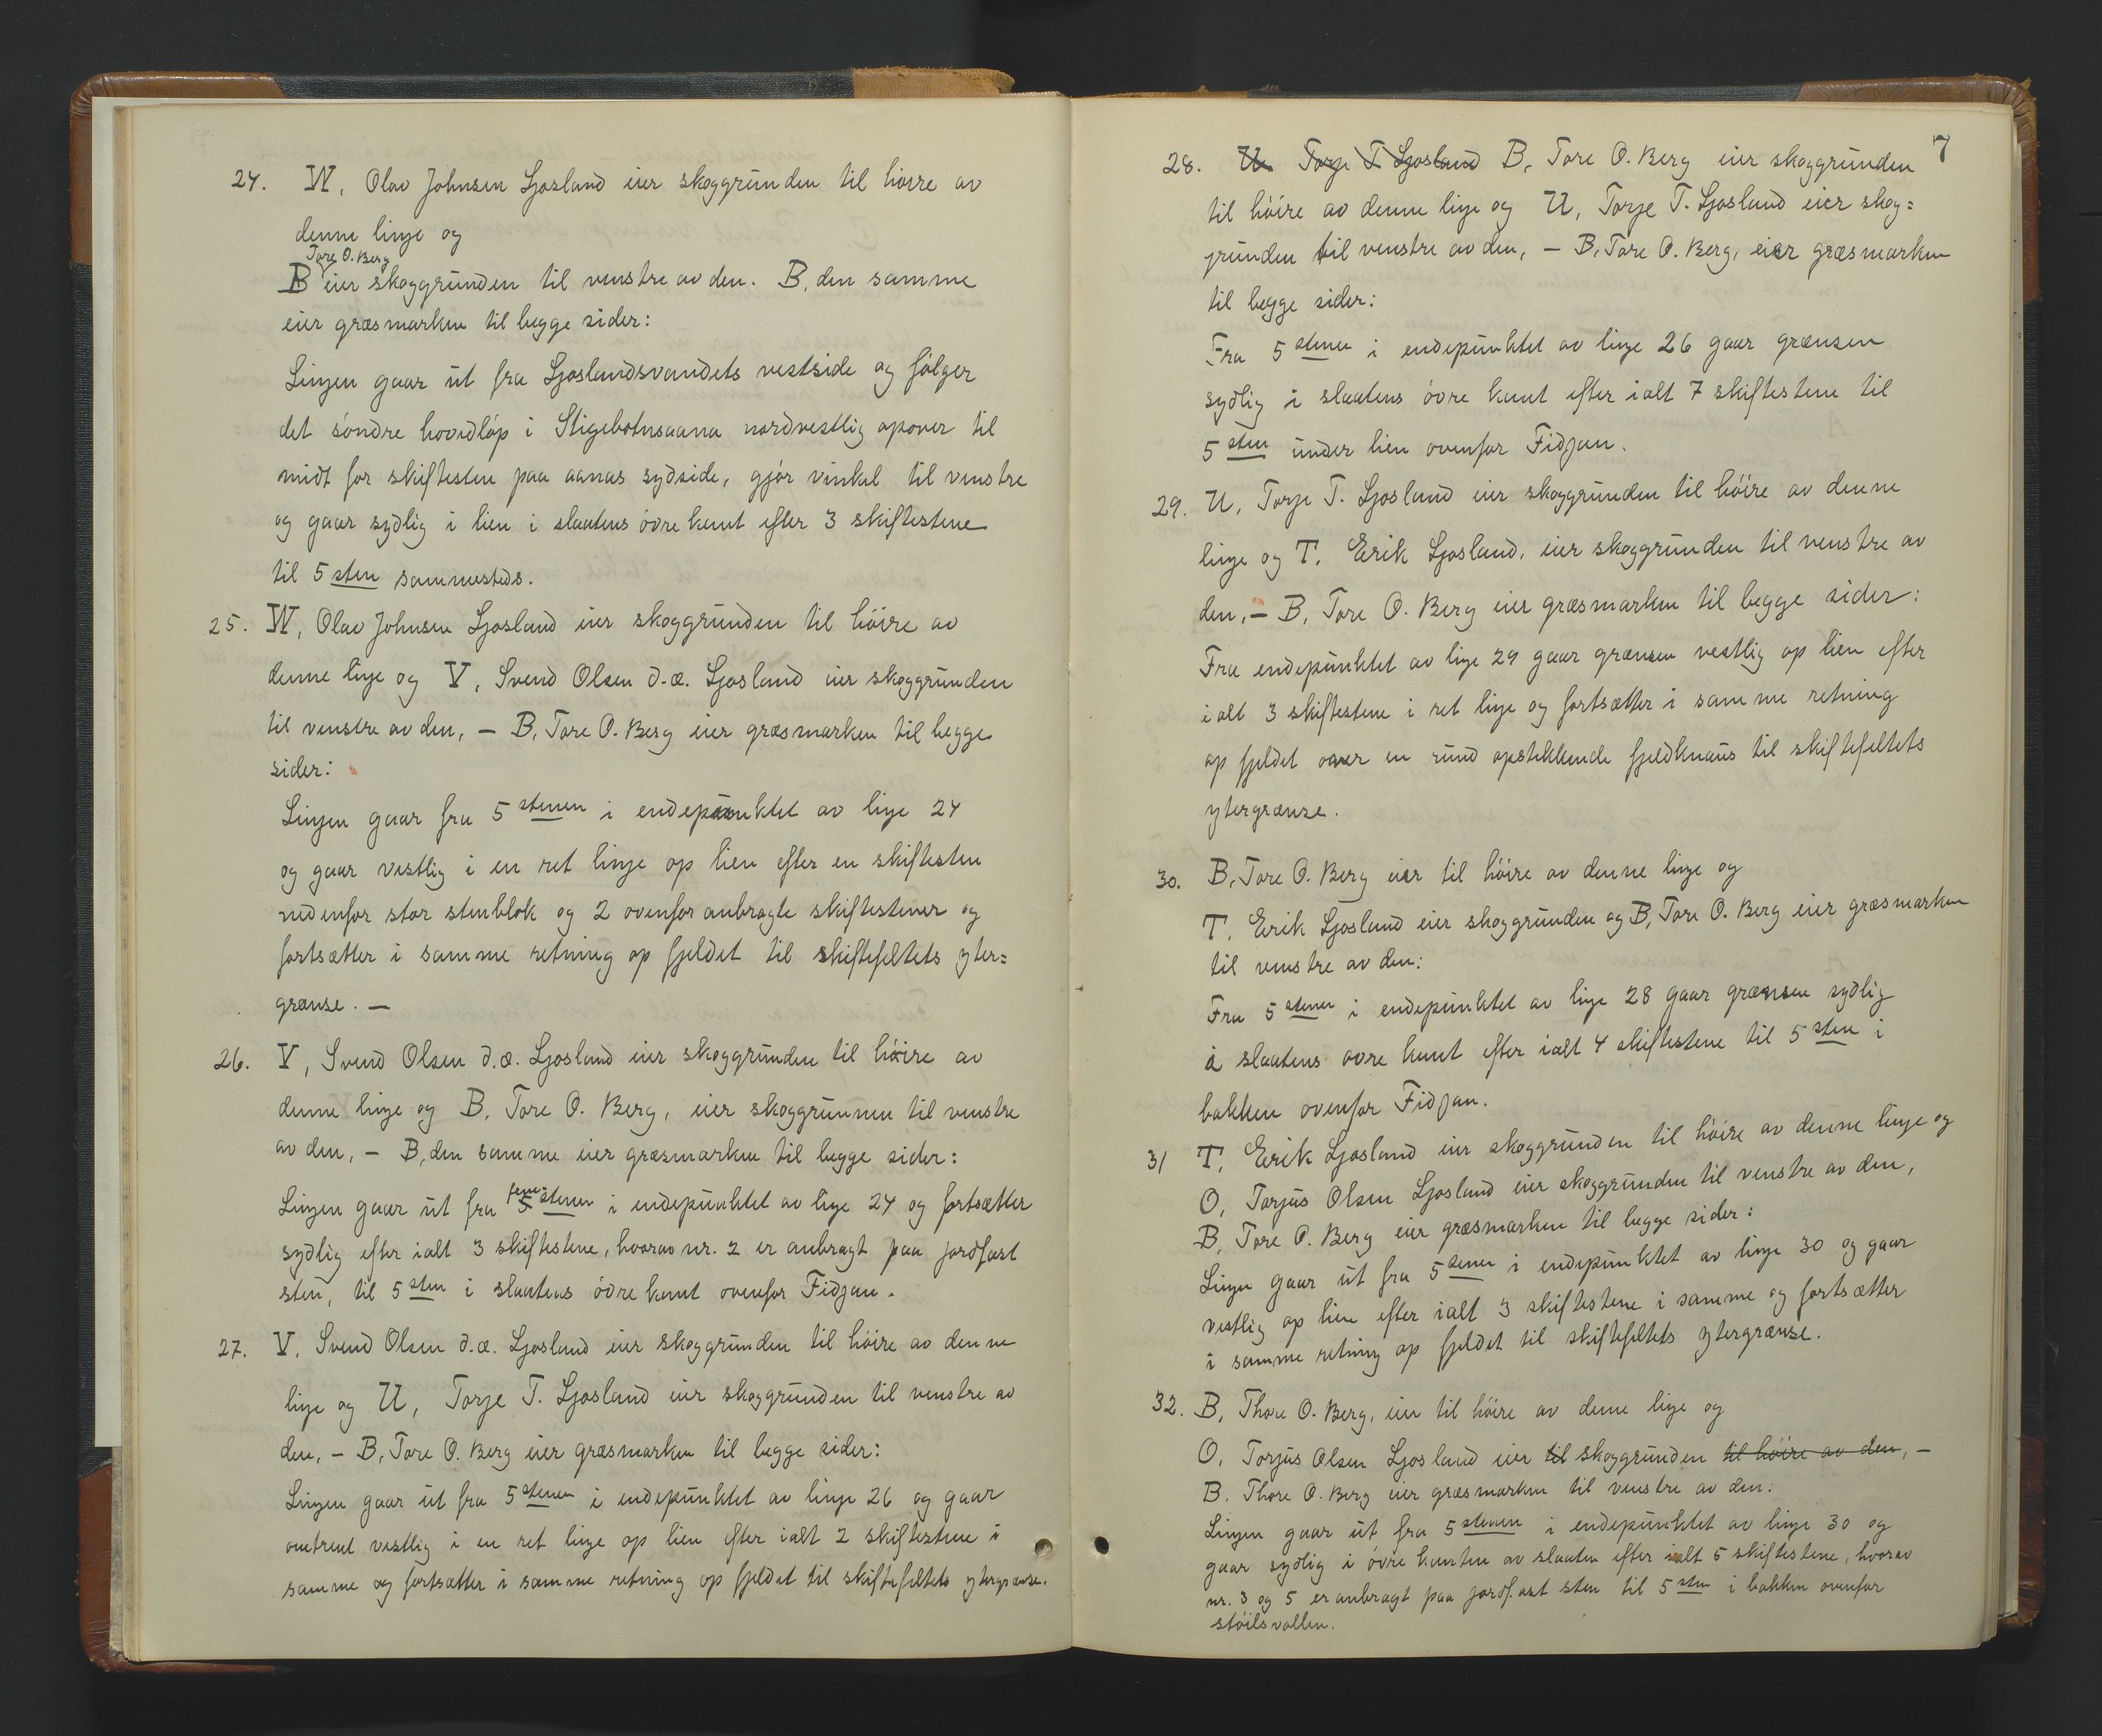 24. W, Olav Johnsen Ljosland eier skoggrunden til høire av
denne linje og
Tore O. Berg
B eier skoggrunden til venstre av den. B, den samme
eier græsmarken til begge sider:
Linjen gaar ut fra Ljoslandsvandets vestside og følger
det søndre hovedløp i Stigebotnsaana nordvestlig opover til
midt for skiftesten paa aanas sydside, gjør vinkel til venstre
og gaar sydlig i lien i slaatens øvre kant efter 3 skiftestene
til 5 sten sammesteds.
25. W, Olav Johnsen Ljosland eier skoggrunden til høire av
denne linje og V, Svend Olsen d.æ. Ljosland eier skoggrunden
til venstre av den, — B, Tore O. Berg eier græsmarken til begge
sider:
Linjen gaar fra 5 stenen i endepunktet av linje 24
og gaar vestlig i en ret linje op lien efter en skiftesten
nedenfor stor stenblok og 2 ovenfor anbragte skiftestener og
fortsætter i samme retning op fjeldet til skiftefeltets yter=
grænse. —
26. V, Svend Olsen d.æ. Ljosland eier skoggrunden til høire av
denne linje og B, Tore O. Berg, eier skoggrunnen til venstre
av den, — B, den samme eier græsmarken til begge sider:
Linjen gaar ut fra 5 stenen i endepunktet av linje 24 og fortsætter
sydlig efter ialt 3 skiftestene, hvorav nr. 2 er anbragt paa jordfast
sten, til 5 sten i slaatens øvre kant ovenfor Fidjan.
27. V, Svend Olsen d.æ. Ljosland eier skoggrunden til høire av denne
linje og U, Torje T. Ljosland eier skoggrunden til venstre av
den, — B, Tore O. Berg eier græsmarken til begge sider:
Linjen gaar ut fra 5 stenen i endepunktet av linje 26 og gaar
omtrent vestlig i en ret linje op lien efter ialt 2 skiftestene i
samme og fortsætter i samme retning op fjeldet til skiftefeltets ytergrænse.
7
28. U. Torje T. Ljosland B, Tore O. Berg eier skoggrunden
til høire av denne linje og U, Torje T. Ljosland eier skog=
grunden til venstre av den, — B, Tore O. Berg, eier græsmarken
til begge sider:
Fra 5 stenen i endepunktet av linje 26 gaar grænsen
sydlig i slaatens øvre kant efter ialt 7 skiftestene til
5 sten under lien ovenfor Fidjan.
29. U, Torje T. Ljosland eier skoggrunden til høire av denne
linje og T, Erik Ljosland, eier skoggrunden til venstre av
den, — B, Tore O. Berg eier græsmarken til begge sider:
Fra endepunktet av linje 29 gaar grænsen vestlig op lien efter
ialt 3 skiftestene i ret linje og fortsætter i samme retning
op fjeldet over en rund opstikkende fjeldknaus til skiftefeltets
ytergrænse.
30. B, Tore O. Berg eier til høire av denne linje og
T, Erik Ljosland eier skoggrunden og B, Tore O. Berg eier græsmarken
til venstre av den:
Fra 5 stenen i endepunktet av linje 28 gaar grænsen sydlig
i slaatens øvre kant efter ialt 4 skiftestene til 5 sten i
bakken ovenfor Fidjan.
31 T, Erik Ljosland eier skoggrunden til høire av denne linje og
O, Torjus Olsen Ljosland eier skoggrunden til venstre av den,
B, Tore O. Berg eier græsmarken til begge sider:
Linjen gaar ut fra 5 stenen i endepunktet av linje 30 og gaar
vestlig op lien efter ialt 3 skiftestene i samme og fortsætter
i samme retning op fjeldet til skiftefeltets ytergrænse.
32. B, Thore O. Berg, eier til høire av denne linje og
O, Torjus Olsen Ljosland eier til skoggrunden til høire av den, —
B. Thore O. Berg eier græsmarken til venstre av den:
Linjen gaar ut fra 5 stenen i endepunktet av linje 30 og
gaar sydlig i øvre kanten av slaaten efter ialt 5 skiftestene, hvorav
nr. 3 og 5 er anbragt paa jordfast sten til 5 sten i bakken ovenfor
støilsvollen.